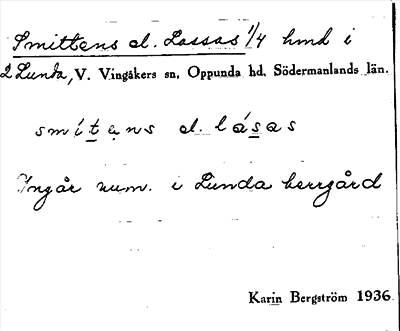 Smittens el. Lassas 1/4 hmd i
2 Lunda, V. Vingåkers sn, Oppunda hd. Södermanlands län.
smítans el. lásas
Ingår num. i Lunda herrgård
Karin Bergström 1936